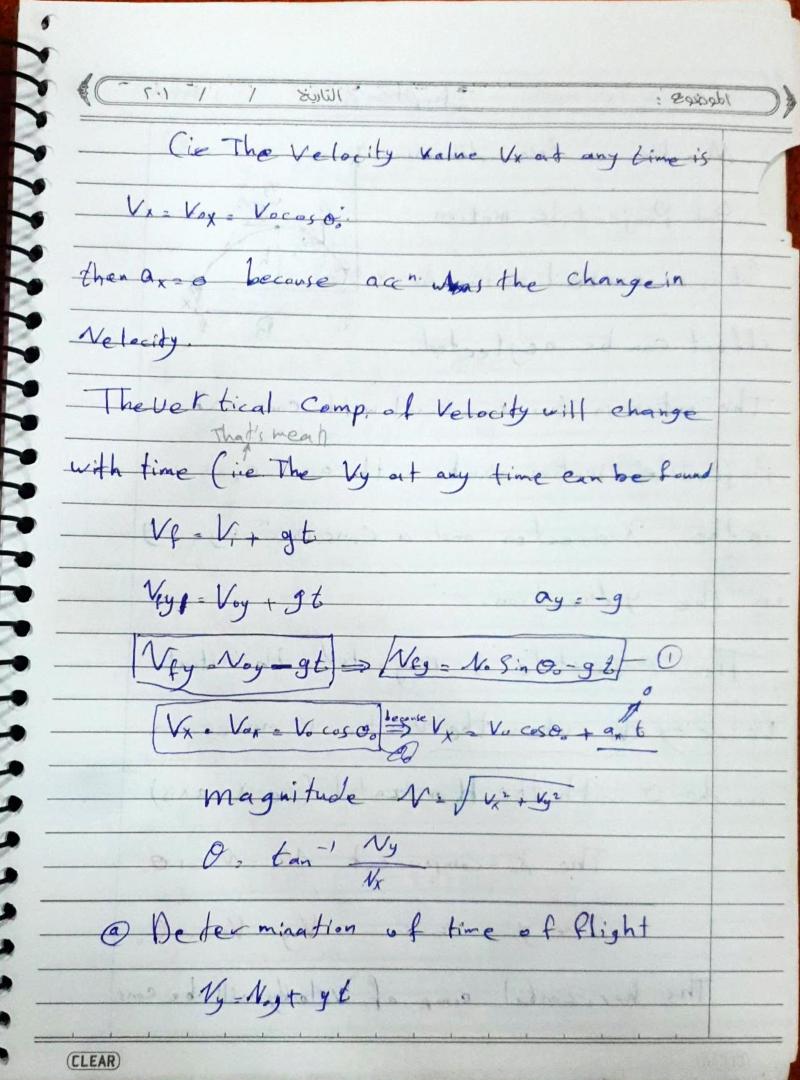 الموضوع : التاريخ / / ٢٠١
(ie The Velocity value Vx at any time is
Vx = Vox = Vo cos θo.
then ax = 0 because accⁿ. was the change in
Velocity.
The vertical Comp. of Velocity will change
That's mean
with time (iie The Vy at any time can be found
Vf = Vi + gt
Vfy = Voy + gt ay = -g
Vfy = Voy - gt ⇒ Vfy = Vo Sin θo - gt ①
Vx = Vox = Vo cos θo because ⇒ Vx = Vo cos θo + ax t 0
magnitude V = √Vx² + Vy²
θ = tan⁻¹ Vy / Vx
ⓐ Deter mination of time of flight
Vy = Voy + gt
CLEAR